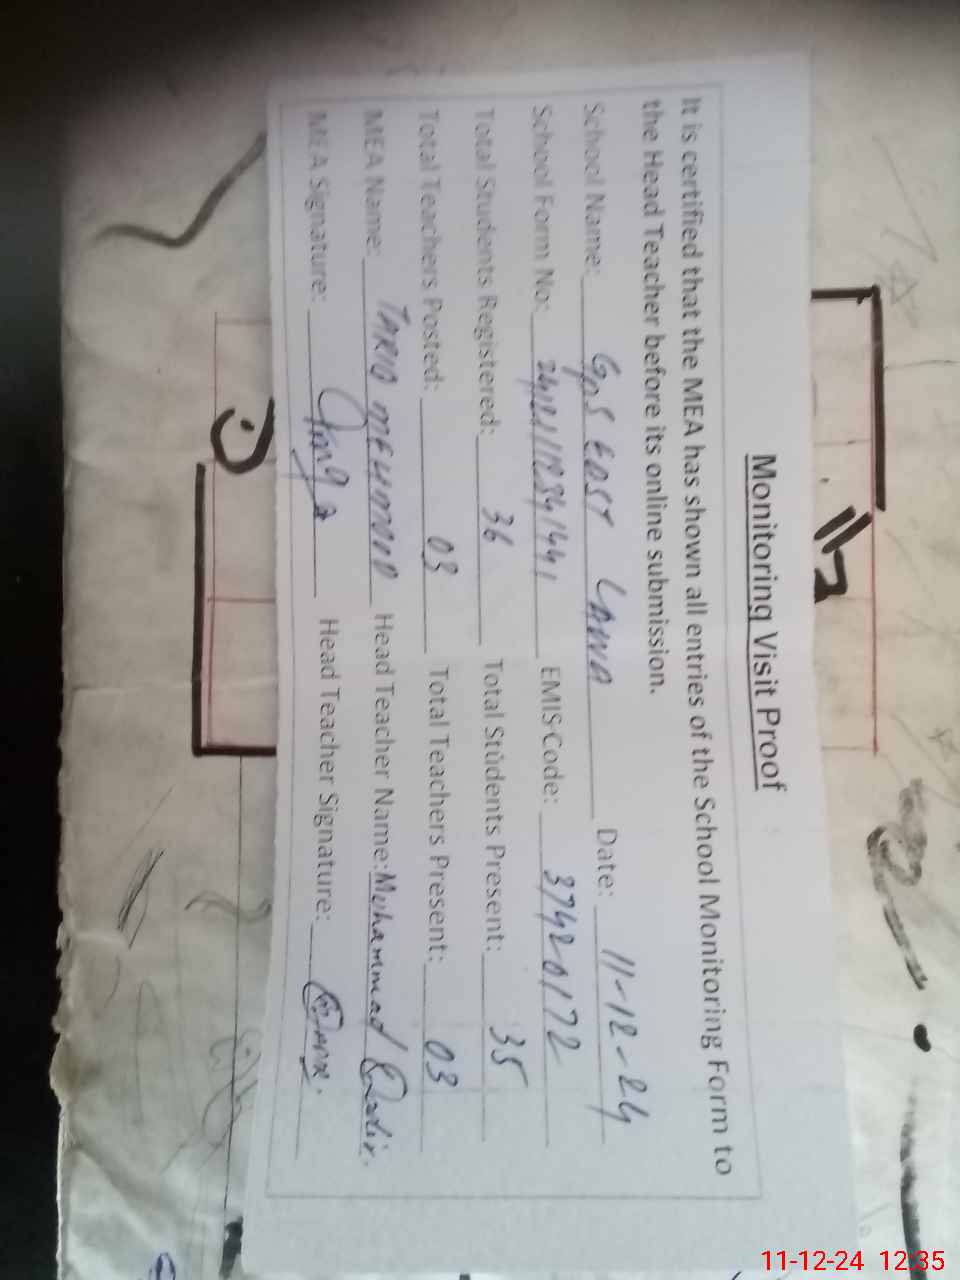 Monitoring Visit Proof
It is certified that the MEA has shown all entries of the School Monitoring Form to
the Head Teacher before its online submission.
School Name: GPS EAST LAWA Date: 11-12-24
School Form No: EMIS Code: 37420172
Total Students Registered: 36 Total Students Present: 35
Total Teachers Posted: 03 Total Teachers Present: 03
MEA Name: TARIQ MEHMOOD Head Teacher Name: Muhammad Qadir.
MEA Signature: Head Teacher Signature:
11-12-24 12:35